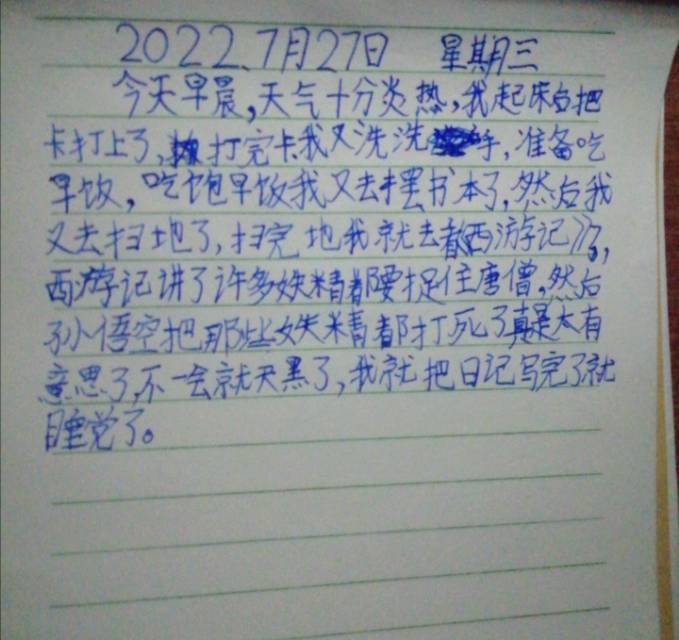 2022.7月27日 星期三
今天早晨,天气十分炎热,我起床后把
卡打上了,打完卡我又洗洗手,准备吃
早饭,吃饱早饭我又去摆书本了,然后我
又去扫地了,扫完地我就去看西游记》了,
西游记讲了许多妖精都要捉住唐僧,然后
孙悟空把那些妖精都打死了真是太有
意思了,不一会就天黑了,我就把日记写完了就
睡觉了。